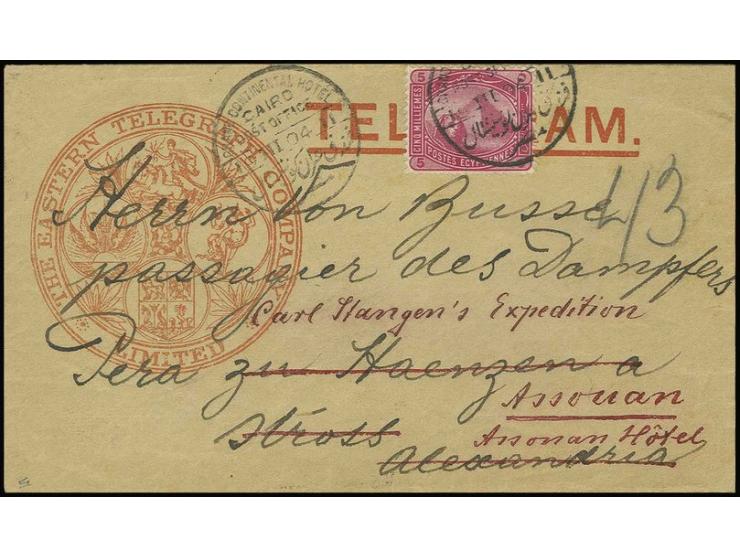 THE EASTERN TELEGRAPH COMPANY LIMITED
CONTINENTAL HOTEL
CAIRO
TEL AM.
CINQ MILLIEMES
5 5
POSTES EGYPTIENNES
4/3
Herrn von Busse
passagier des Dampfers
Carl Stangen's Expedition
Pera zu Haenzen a
Assouan
Stross
Assouan Hôtel
Alexandria